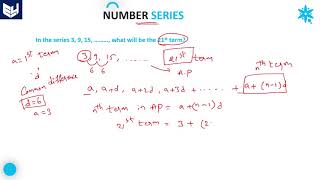 NUMBER SERIES
In the series 3, 9, 15, ........., what will be the 21st term?
a = 1st term
3, 9, 15, ........... 21st term
6 6
A.P
d
Common difference
d=6
a=3
nth term
a, a+d, a+2d, a+3d + ...... + a+(n-1)d
nth term in AP = a+(n-1)d
21st term = 3 + (2